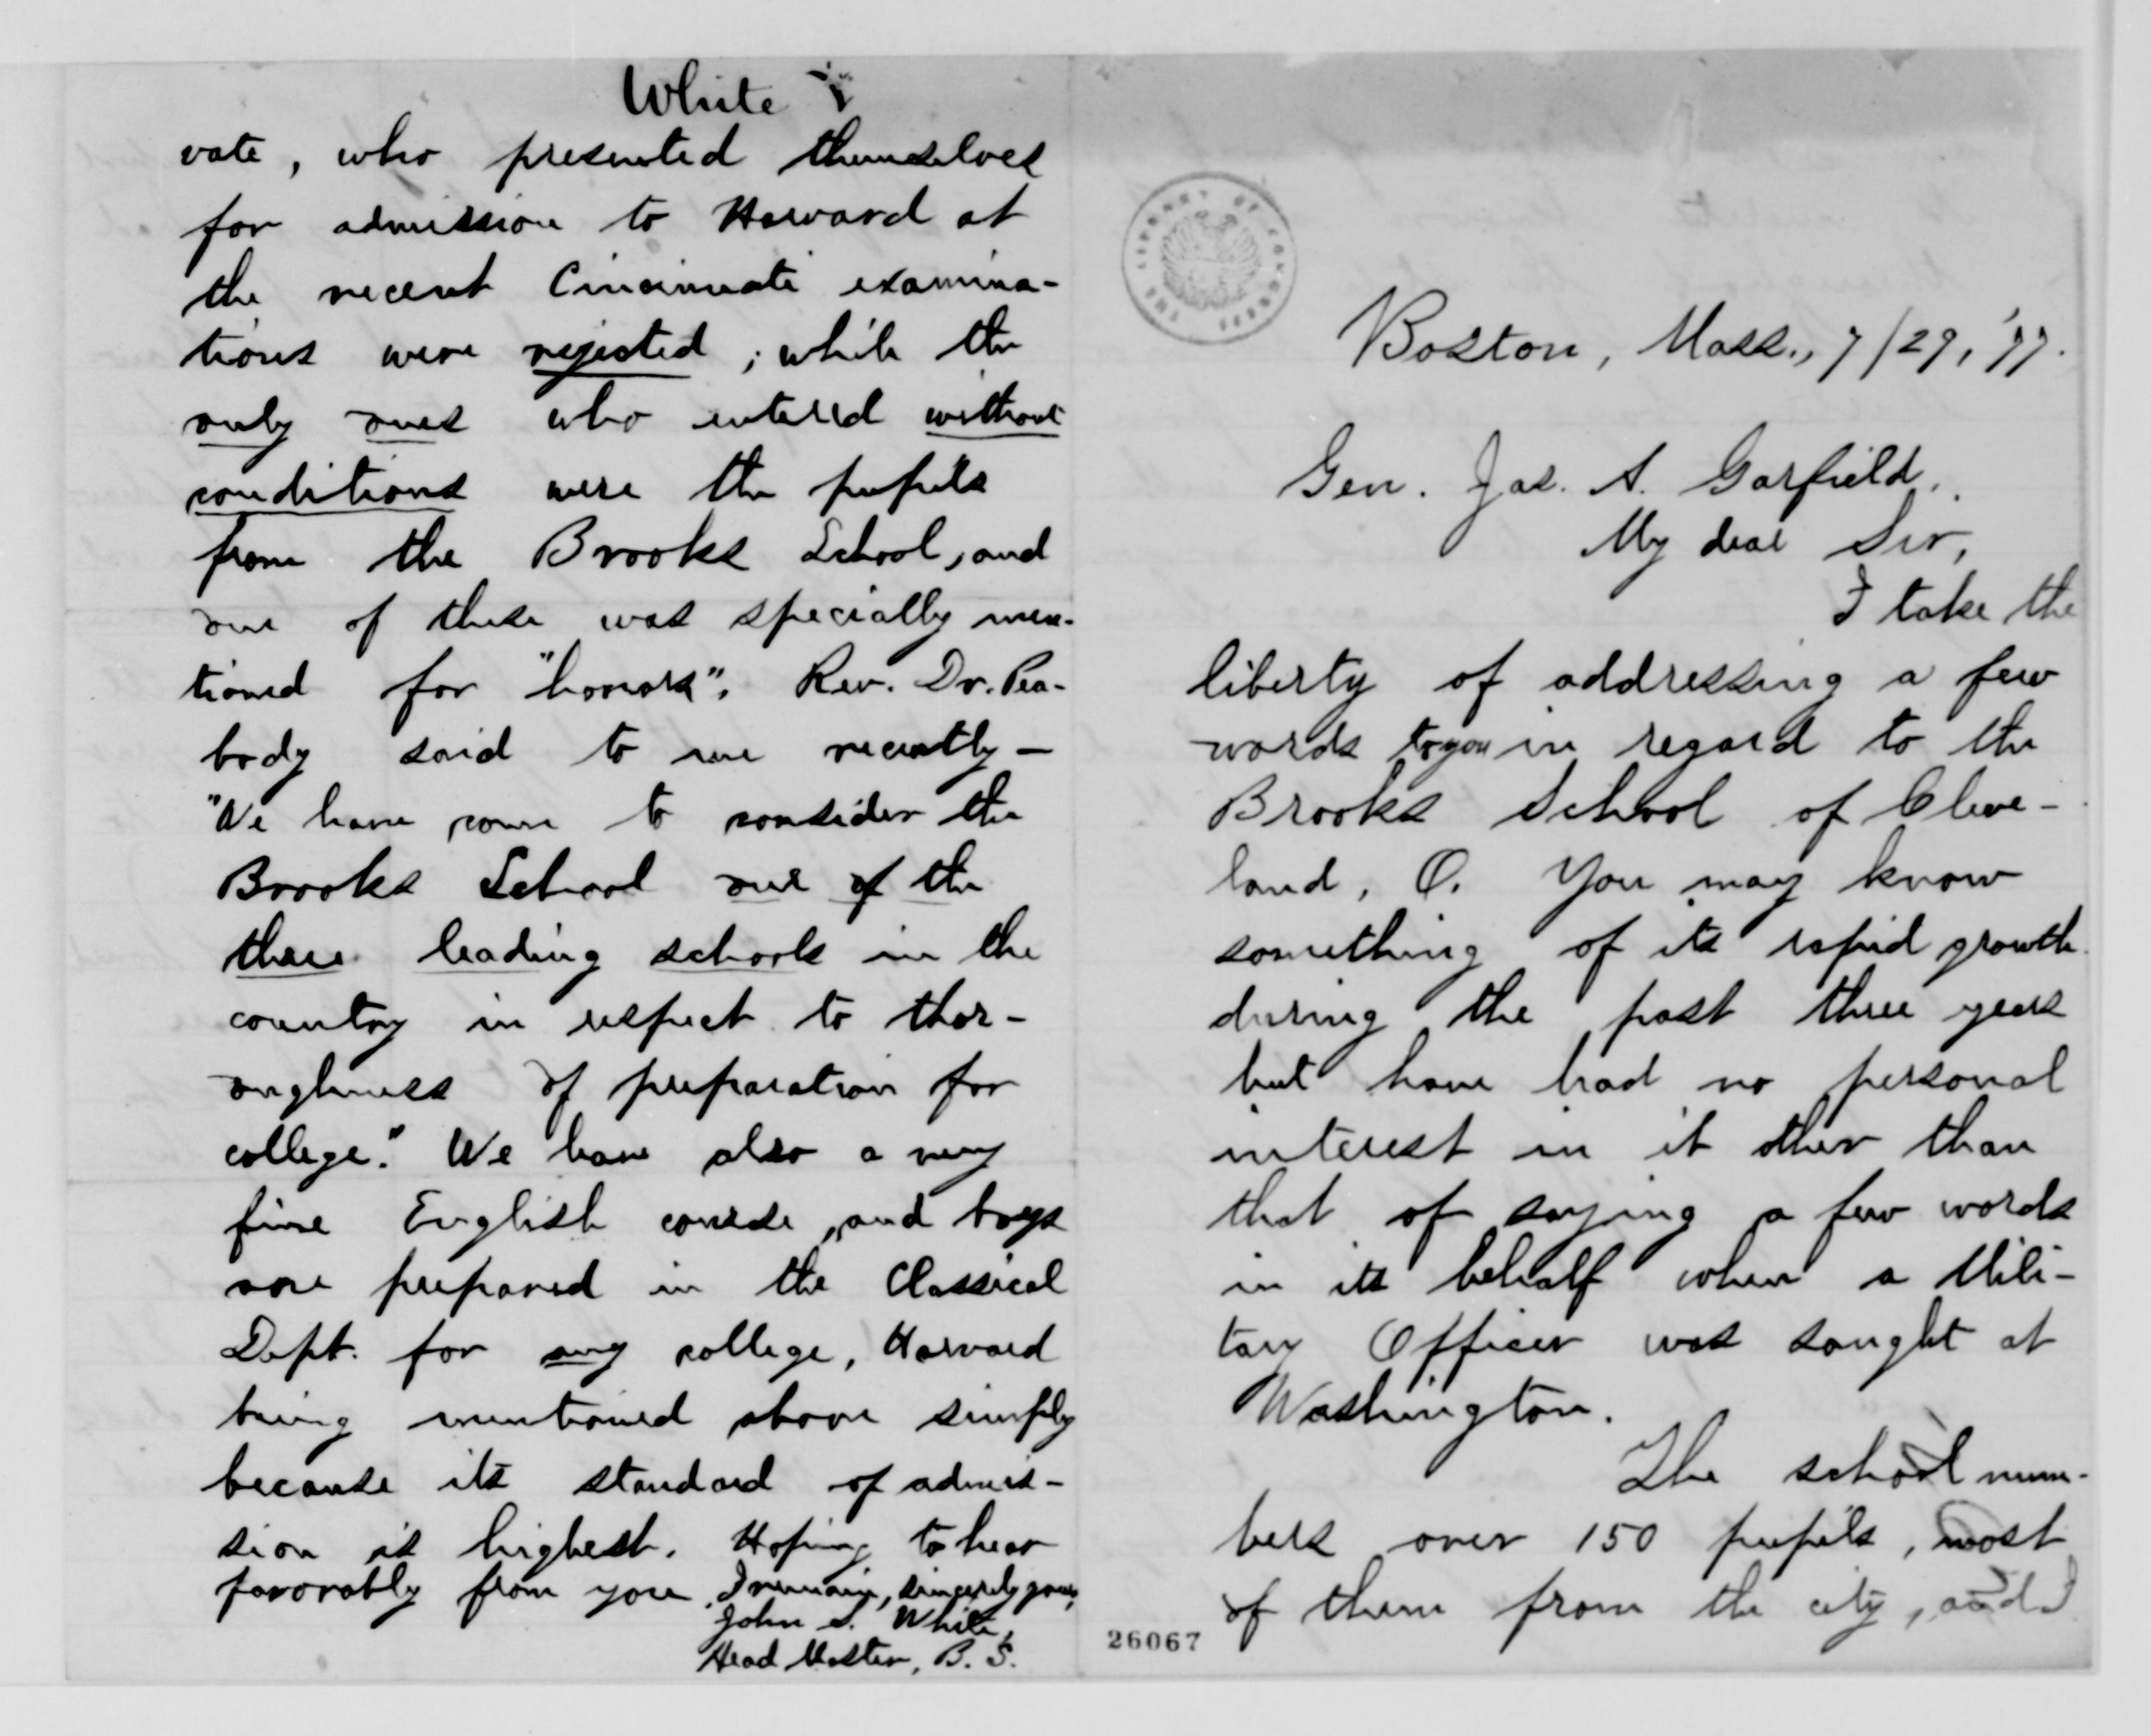 Boston, Mass., 7/29, '77.
Gen. Jas. A. Garfield,
My dear Sir,
I take the
liberty of addressing a few
words to you in regard to the
Brooks School of Cleve-
land, O. You may know
something of its rapid growth
during the past three years
but have had no personal
interest in it other than
that of saying a few words
in its behalf when a Mili-
tary Officer was sought at
Washington.
The school num-
bers over 150 pupils, most
of them from the city, and I
26067
THE LIBRARY OF CONGRESS
White
vate, who presented themselves
for admission to Harvard at
the recent Cincinnati examina-
tions were rejected; while the
only ones who entered without
conditions were the pupils
from the Brooks School, and
one of these was specially men-
tioned for "honors". Rev. Dr. Pea-
body said to me recently—
"We have come to consider the
Brooks School one of the
three leading schools in the
country in respect to thor-
oughness of preparation for
college." We have also a very
fine English course, and boys
are prepared in the Classical
Dept. for any college, Harvard
being mentioned above simply
because its standard of admis-
sion is highest. Hoping to hear
favorably from you I remain, sincerely yours,
John S. White,
Head Master, B. S.